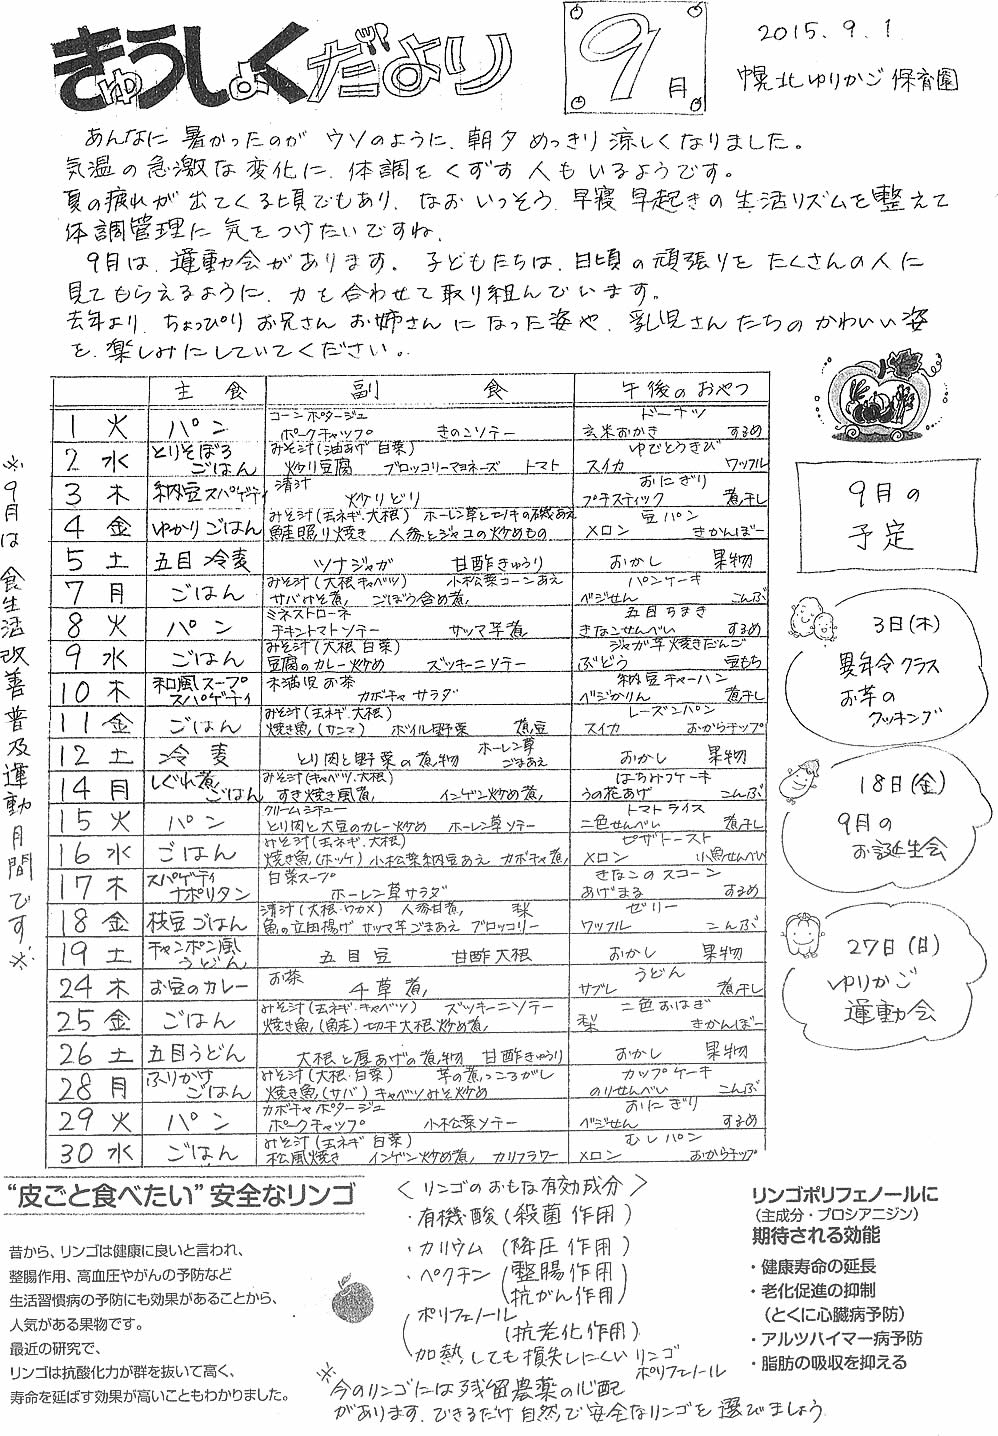 きゅうしょくだより
9月
2015.9.1
幌北ゆりかご保育園
あんなに暑かったのがウソのように、朝夕めっきり涼しくなりました。
気温の急激な変化に、体調をくずす人もいるようです。
夏の疲れが出てくる頃でもあり、なおいっそう、早寝早起きの生活リズムを整えて
体調管理に気をつけたいですね。
9月は、運動会があります。子どもたちは、日頃の頑張りをたくさんの人に
見てもらえるように、力を合わせて取り組んでいます。
去年より、ちょっぴりお兄さんお姉さんになった姿や、乳児さんたちのかわいい姿
を、楽しみにしていてください。
※9月は食生活改善普及運動月間です※
主食 副食 午後のおやつ
1 火 パン コーンポタージュ ドーナツ
ポークチャップ きのこソテー 玄米おかき するめ
2 水 とりそぼろごはん みそ汁(油あげ 白菜) ゆでとうきび
炒り豆腐 ブロッコリーマヨネーズ トマト スイカ ワッフル
3 木 納豆スパゲティ 清汁 おにぎり
炒りどり プチスティック 煮干し
4 金 ゆかりごはん みそ汁(玉ネギ.大根) ホーレン草とモノキの磯あえ 豆パン
鮭照り焼き 人参とジャコの炒めもの メロン きかんぼー
5 土 五目冷麦 ツナジャガ 甘酢きゅうり おかし 果物
7 月 ごはん みそ汁(大根 キャベツ) 小松菜コーンあえ パンケーキ
サバみそ煮, ごぼう含め煮, ベジせん こんぶ
8 火 パン ミネストローネ 五目ちまき
チキントマトソテー サツマ芋煮 きなこせんべい するめ
9 水 ごはん みそ汁(大根 白菜) ジャガ芋焼きだんご
豆腐のカレー炒め ズッキーニソテー ぶどう 豆もち
10 木 和風スープスパゲティ 未満児お茶 納豆チャーハン
カボチャサラダ ベジかりん 煮干し
11 金 ごはん みそ汁(玉ネギ.大根) レーズンパン
焼き魚,(サンマ) ボイル野菜 煮豆 スイカ おからチップ
12 土 冷麦 とり肉と野菜の煮物 ホーレン草ごまあえ おかし 果物
14 月 しぐれ煮,ごはん みそ汁(キャベツ.大根) はちみつケーキ
すき焼き風煮, インゲン炒め煮, うの花あげ こんぶ
15 火 パン クリームシチュー トマトライス
とり肉と大豆のカレー炒め ホーレン草ソテー 二色せんべい 煮干し
16 水 ごはん みそ汁(玉ネギ.大根) ピザトースト
焼き魚,(ホッケ) 小松菜納豆あえ カボチャ煮, メロン 小魚せんべい
17 木 スパゲティナポリタン 白菜スープ きなこのスコーン
ホーレン草サラダ あげまる するめ
18 金 枝豆ごはん 清汁(大根・ワカメ) 人参甘煮, 梨 ゼリー
魚の立田揚げ サツマ芋ごまあえ ブロッコリー ワッフル こんぶ
19 土 チャンポン風うどん 五目豆 甘酢大根 おかし 果物
24 木 お豆のカレー お茶 うどん
千草煮, サブレ 煮干し
25 金 ごはん みそ汁(玉ネギ.キャベツ) ズッキーニソテー 二色おはぎ
焼き魚,(鮭) 切干大根炒め煮, 梨 きかんぼー
26 土 五目うどん 大根と厚あげの煮,物 甘酢きゅうり おかし 果物
28 月 ふりかけごはん みそ汁(大根・白菜) 芋の煮っころがし カップケーキ
焼き魚,(サバ) キャベツみそ炒め のりせんべい こんぶ
29 火 パン カボチャポタージュ おにぎり
ポークチャップ 小松菜ソテー ベジせん するめ
30 水 ごはん みそ汁(玉ネギ 白菜) むしパン
松風焼き インゲン炒め煮, カリフラワー メロン おからチップ
9月の
予定
3日(木)
異年令クラス
お芋の
クッキング
18日(金)
9月の
お誕生会
27日(日)
ゆりかご
運動会
“皮ごと食べたい”安全なリンゴ
昔から、リンゴは健康に良いと言われ、
整腸作用、高血圧やがんの予防など
生活習慣病の予防にも効果があることから、
人気がある果物です。
最近の研究で、
リンゴは抗酸化力が群を抜いて高く、
寿命を延ばす効果が高いこともわかりました。
〈リンゴのおもな有効成分〉
・有機酸(殺菌作用)
・カリウム(降圧作用)
・ペクチン(整腸作用
抗がん作用)
ポリフェノール
(抗老化作用)
加熱しても損失しにくいリンゴ
ポリフェノール
※今のリンゴには残留農薬の心配
があります。できるだけ自然で安全なリンゴを選びましょう
リンゴポリフェノールに
(主成分・プロシアニジン)
期待される効能
・健康寿命の延長
・老化促進の抑制
(とくに心臓病予防)
・アルツハイマー病予防
・脂肪の吸収を抑える